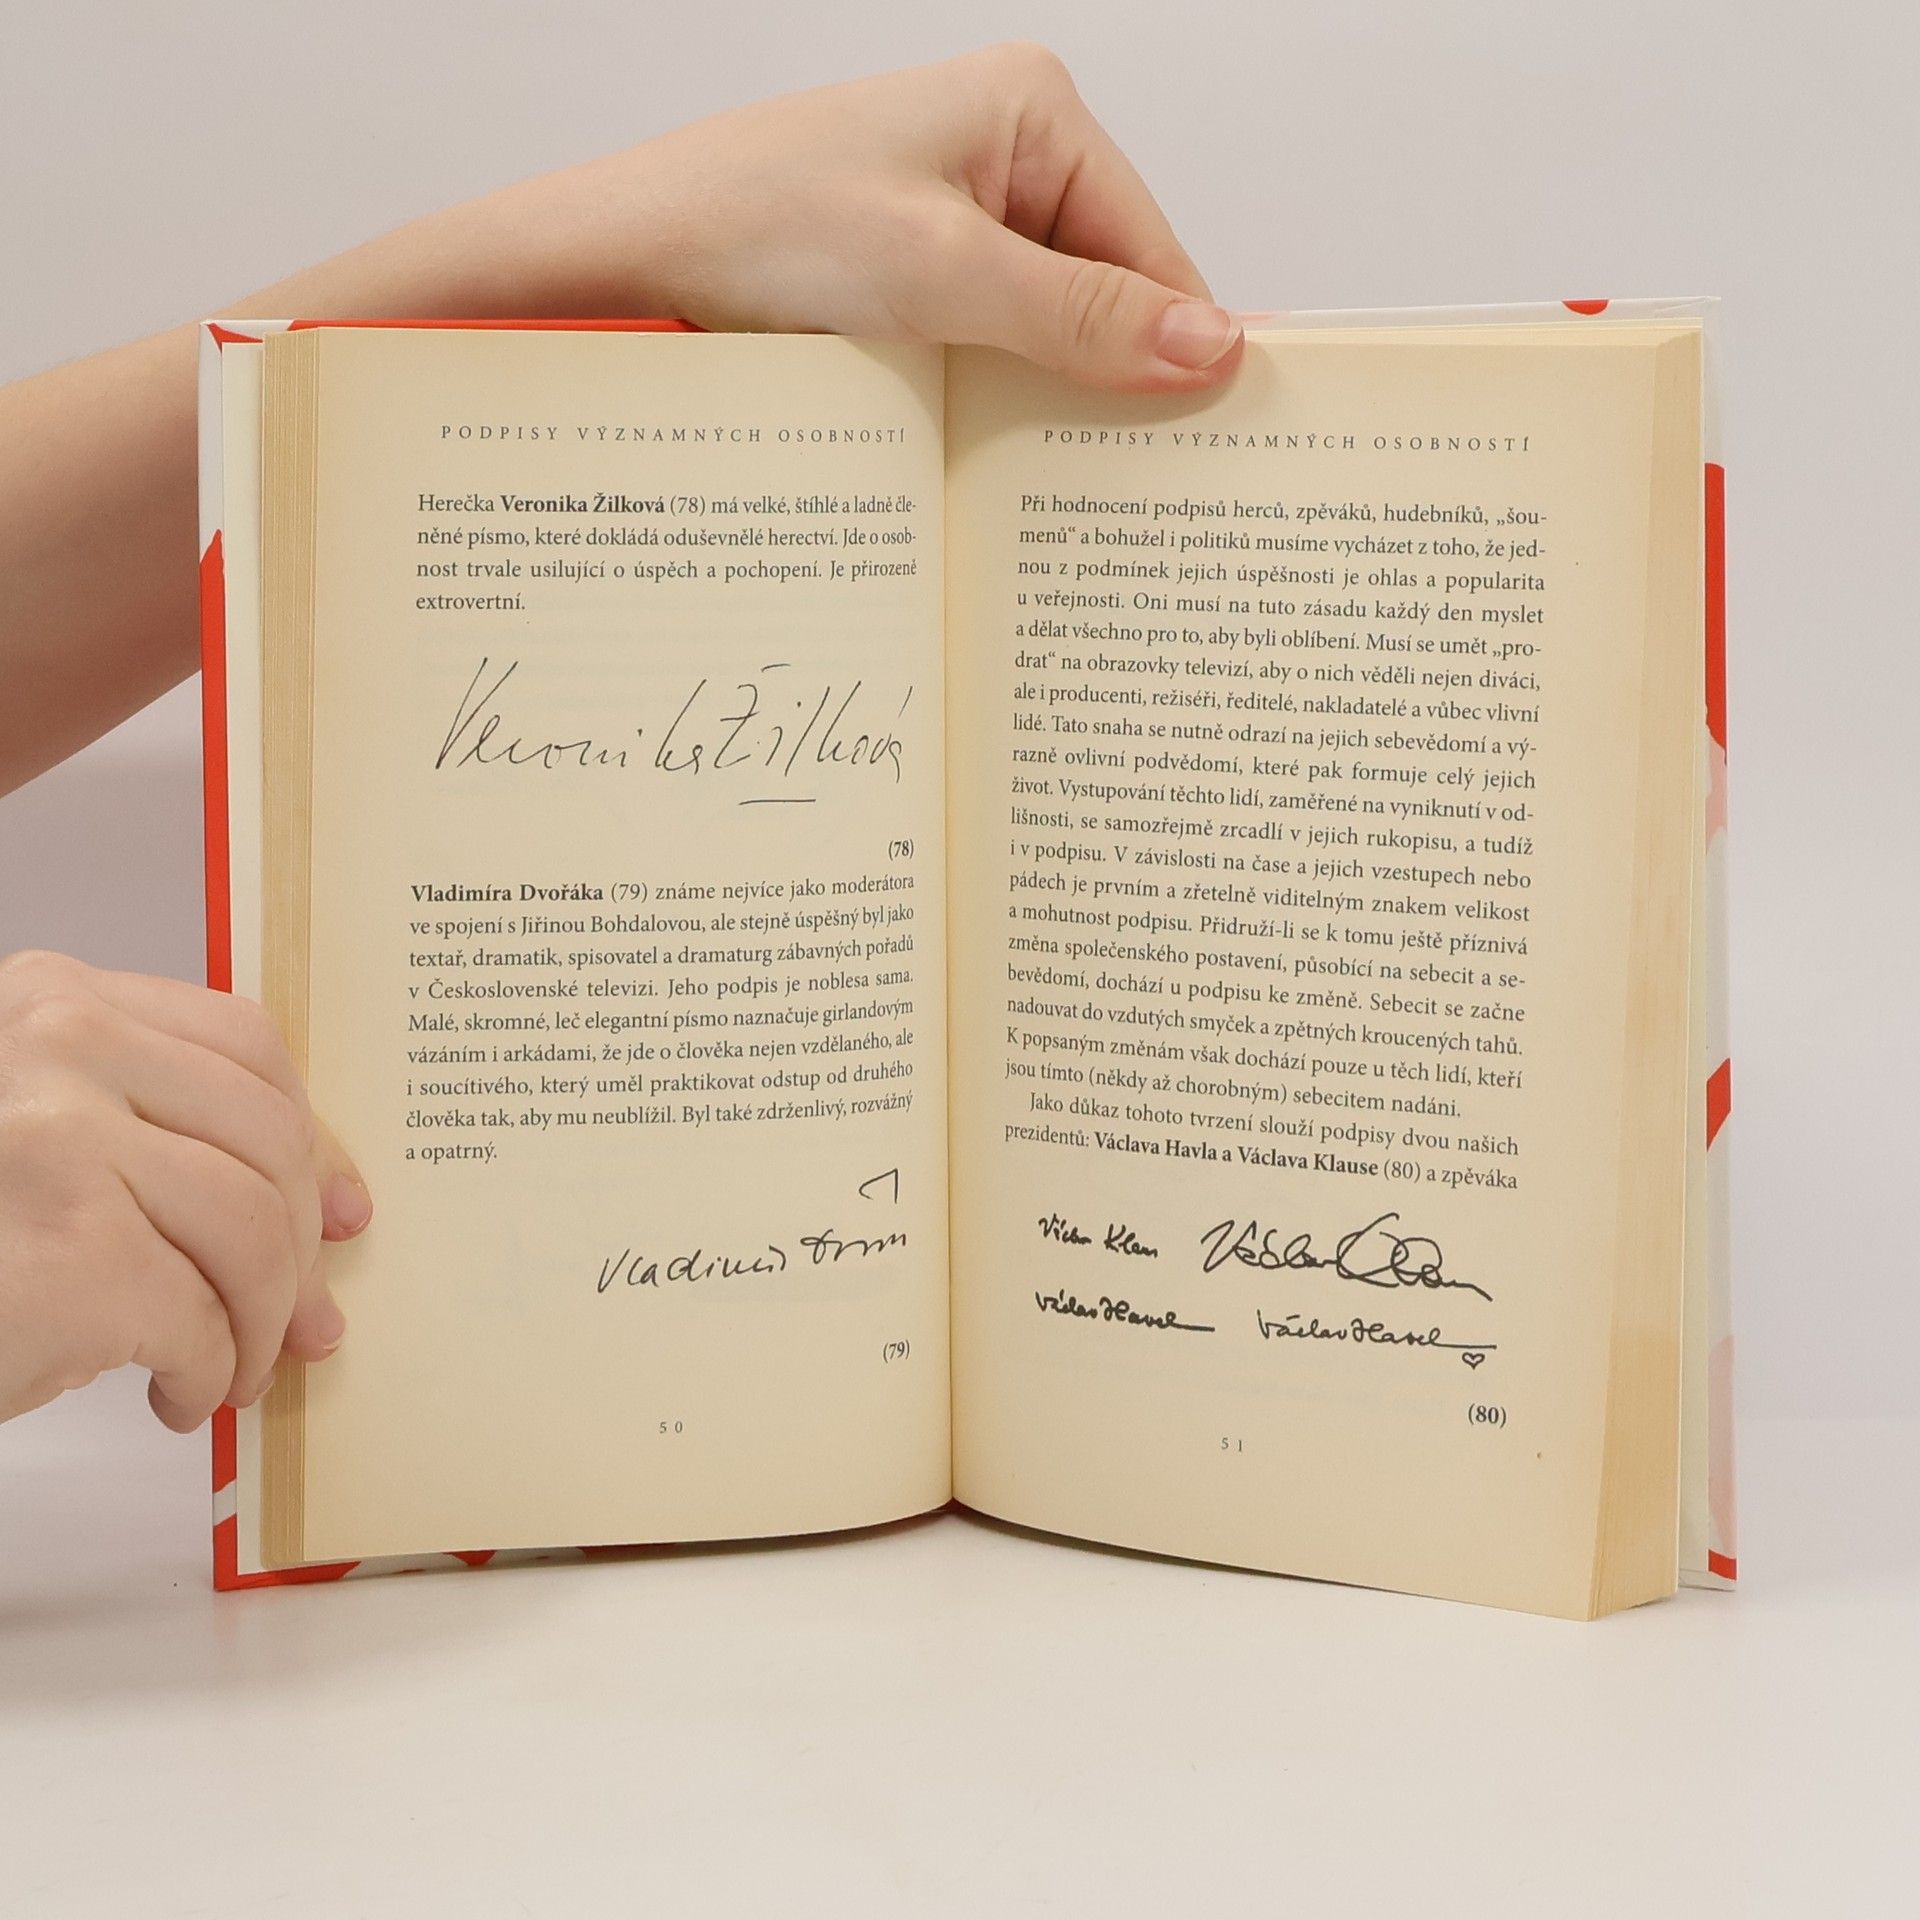 PODPISY VÝZNAMNÝCH OSOBNOSTÍ
Herečka Veronika Žilková (78) má velké, štíhlé a ladně čle-
něné písmo, které dokládá oduševnělé herectví. Jde o osob-
nost trvale usilující o úspěch a pochopení. Je přirozeně
extrovertní.
Veronika Žilková
(78)
Vladimíra Dvořáka (79) známe nejvíce jako moderátora
ve spojení s Jiřinou Bohdalovou, ale stejně úspěšný byl jako
textař, dramatik, spisovatel a dramaturg zábavných pořadů
v Československé televizi. Jeho podpis je noblesa sama.
Malé, skromné, leč elegantní písmo naznačuje girlandovým
vázáním i arkádami, že jde o člověka nejen vzdělaného, ale
i soucítivého, který uměl praktikovat odstup od druhého
člověka tak, aby mu neublížil. Byl také zdrženlivý, rozvážný
a opatrný.
Vladimír
(79)
50
PODPISY VÝZNAMNÝCH OSOBNOSTÍ
Při hodnocení podpisů herců, zpěváků, hudebníků, „šou-
menů“ a bohužel i politiků musíme vycházet z toho, že jed-
nou z podmínek jejich úspěšnosti je ohlas a popularita
u veřejnosti. Oni musí na tuto zásadu každý den myslet
a dělat všechno pro to, aby byli oblíbení. Musí se umět „pro-
drat“ na obrazovky televizí, aby o nich věděli nejen diváci,
ale i producenti, režiséři, ředitelé, nakladatelé a vůbec vlivní
lidé. Tato snaha se nutně odrazí na jejich sebevědomí a vý-
razně ovlivní podvědomí, které pak formuje celý jejich
život. Vystupování těchto lidí, zaměřené na vyniknutí v od-
lišnosti, se samozřejmě zrcadlí v jejich rukopisu, a tudíž
i v podpisu. V závislosti na čase a jejich vzestupech nebo
pádech je prvním a zřetelně viditelným znakem velikost
a mohutnost podpisu. Přidruží-li se k tomu ještě příznivá
změna společenského postavení, působící na sebecit a se-
bevědomí, dochází u podpisu ke změně. Sebecit se začne
nadouvat do vzdutých smyček a zpětných kroucených tahů.
K popsaným změnám však dochází pouze u těch lidí, kteří
jsou tímto (někdy až chorobným) sebecitem nadáni.
Jako důkaz tohoto tvrzení slouží podpisy dvou našich
prezidentů: Václava Havla a Václava Klause (80) a zpěváka
Václav Klaus
Václav Havel Václav Havel
(80)
51